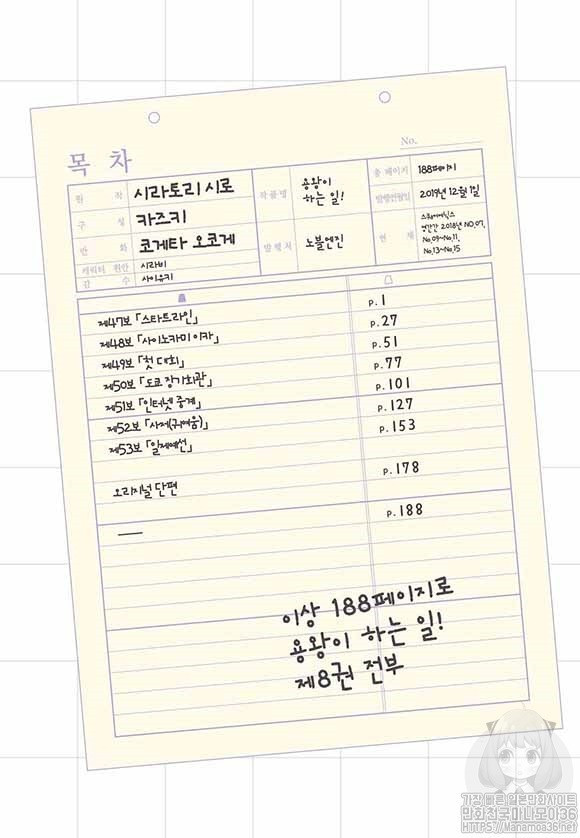 목 차
No.
원 작 시라토리 시로
구 성 카즈키
만 화 코게타 오코게
캐릭터 원안 시라비
감 수 사이유키
작품명 용왕이
하는 일!
발행처 노블엔진
총 페이지 188페이지
발행연월일 2019년 12월 1일
연 재
영간간 2018년 NO.07,
No.09~No.11,
No.13~No.15
제47보 「스타트라인」 p.1
제48보 「사이노카미 이카」 p.27
제49보 「첫 대회」 p.51
제50보 「도쿄 장기회관」 p.77
제51보 「인터넷 중계」 p.101
제52보 「사제(귀여움)」 p.127
제53보 「일제예선」 p.153
오리지널 단편 p.178
― p.188
이상 188페이지로
용왕이 하는 일!
제8권 전부
가장 빠른 일본만화사이트
만화천국 마나모아36
HTTPS://Manamoa36.net